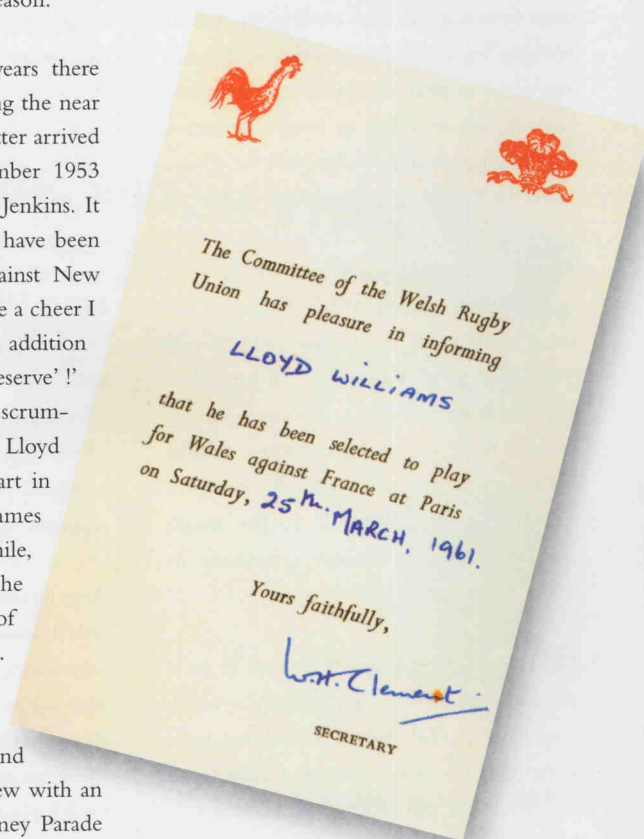 eason.
years there
ng the near
tter arrived
mber 1953
Jenkins. It
have been
ainst New
e a cheer I
addition
eserve' !'
scrum-
Lloyd
art in
ames
nile,
he
of
.
nd
ew with an
ney Parade
The Committee of the Welsh Rugby
Union has pleasure in informing
LLOYD WILLIAMS
that he has been selected to play
for Wales against France at Paris
on Saturday, 25th. MARCH, 1961.
Yours faithfully,
W.H. Clement.
SECRETARY